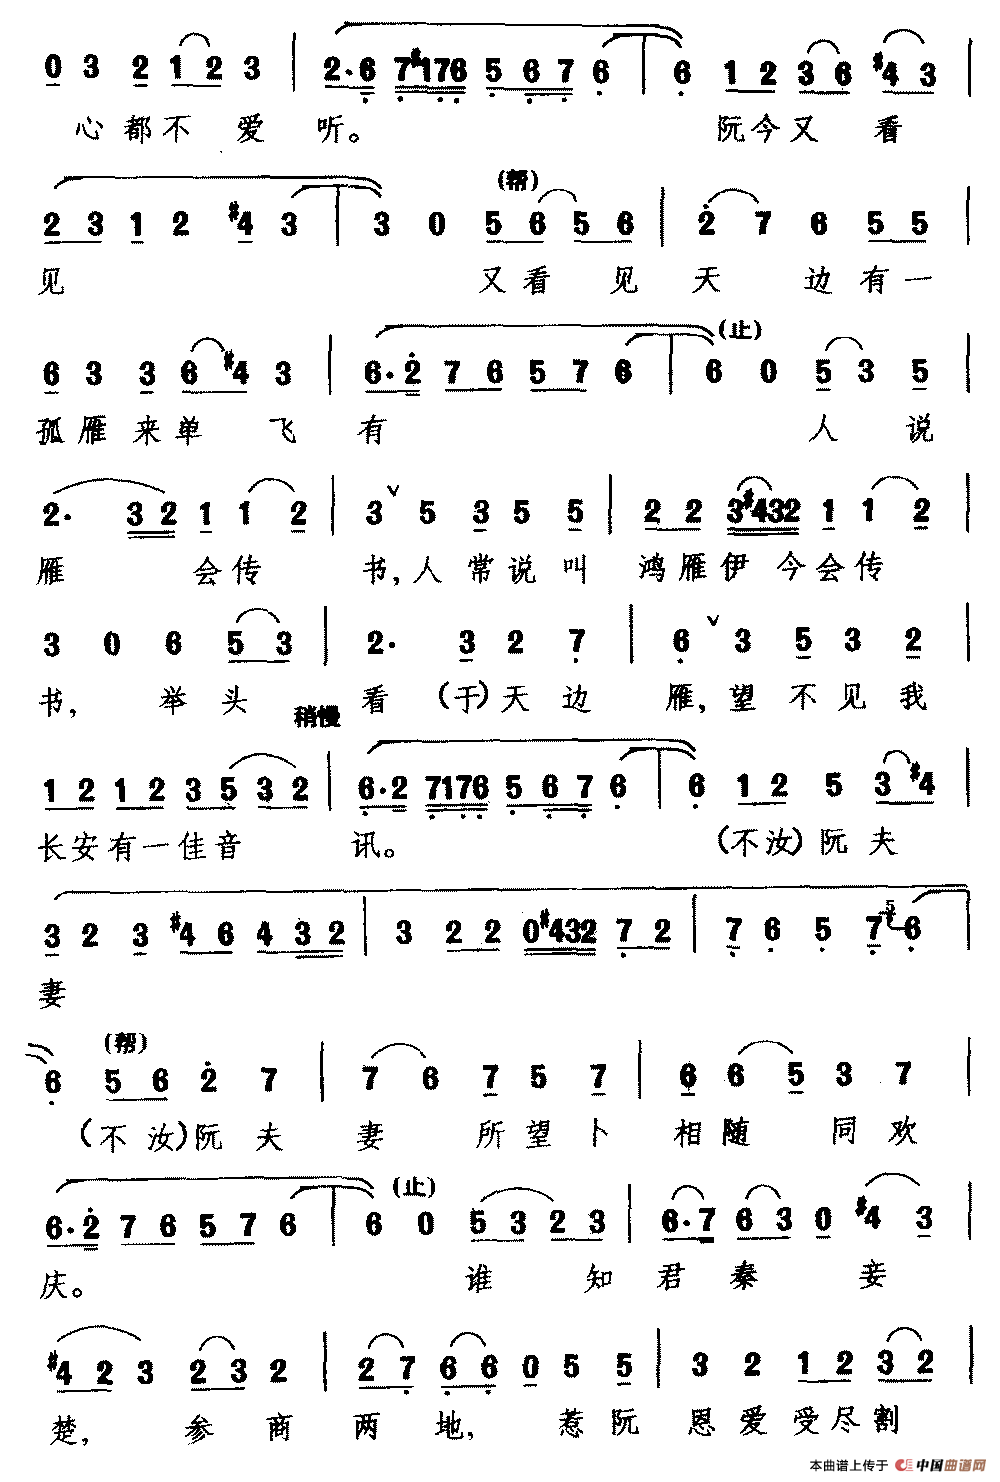 0 3 2 1 2 3 | 2·6 7#176 5 6 7 6 | 6 1 2 3 6 #4 3 |
心都不爱听。阮今又看
(帮)
2 3 1 2 #4 3 | 3 0 5 6 5 6 | 2 7 6 5 5 |
见 又看见天边有一
(止)
6 3 3 6 #4 3 | 6·2 7 6 5 7 6 | 6 0 5 3 5 |
孤雁来单飞有 人说
2· 3 2 1 1 2 | 3 ∨ 5 3 5 5 | 2 2 3#432 1 1 2 |
雁 会传书,人常说叫鸿雁伊今会传
3 0 6 5 3 | 2· 3 2 7 | 6 ∨ 3 5 3 2 |
书, 举头看(于)天边雁,望不见我
稍慢
1 2 1 2 3 5 3 2 | 6·2 7176 5 6 7 6 | 6 1 2 5 3 #4 |
长安有一佳音讯。 (不汝)阮夫
3 2 3 #4 6 4 3 2 | 3 2 2 0#432 7 2 | 7 6 5 7 5 6 |
妻
(帮)
6 5 6 2 7 | 7 6 7 5 7 | 6 6 5 3 7 |
(不汝)阮夫妻 所望卜相随同欢
(止)
6·2 7 6 5 7 6 | 6 0 5 3 2 3 | 6·7 6 3 0 #4 3 |
庆。 谁知君秦妾
#4 2 3 2 3 2 | 2 7 6 6 0 5 5 | 3 2 1 2 3 2 |
楚, 参商两地, 惹阮恩爱受尽割
本曲谱上传于 中国曲谱网